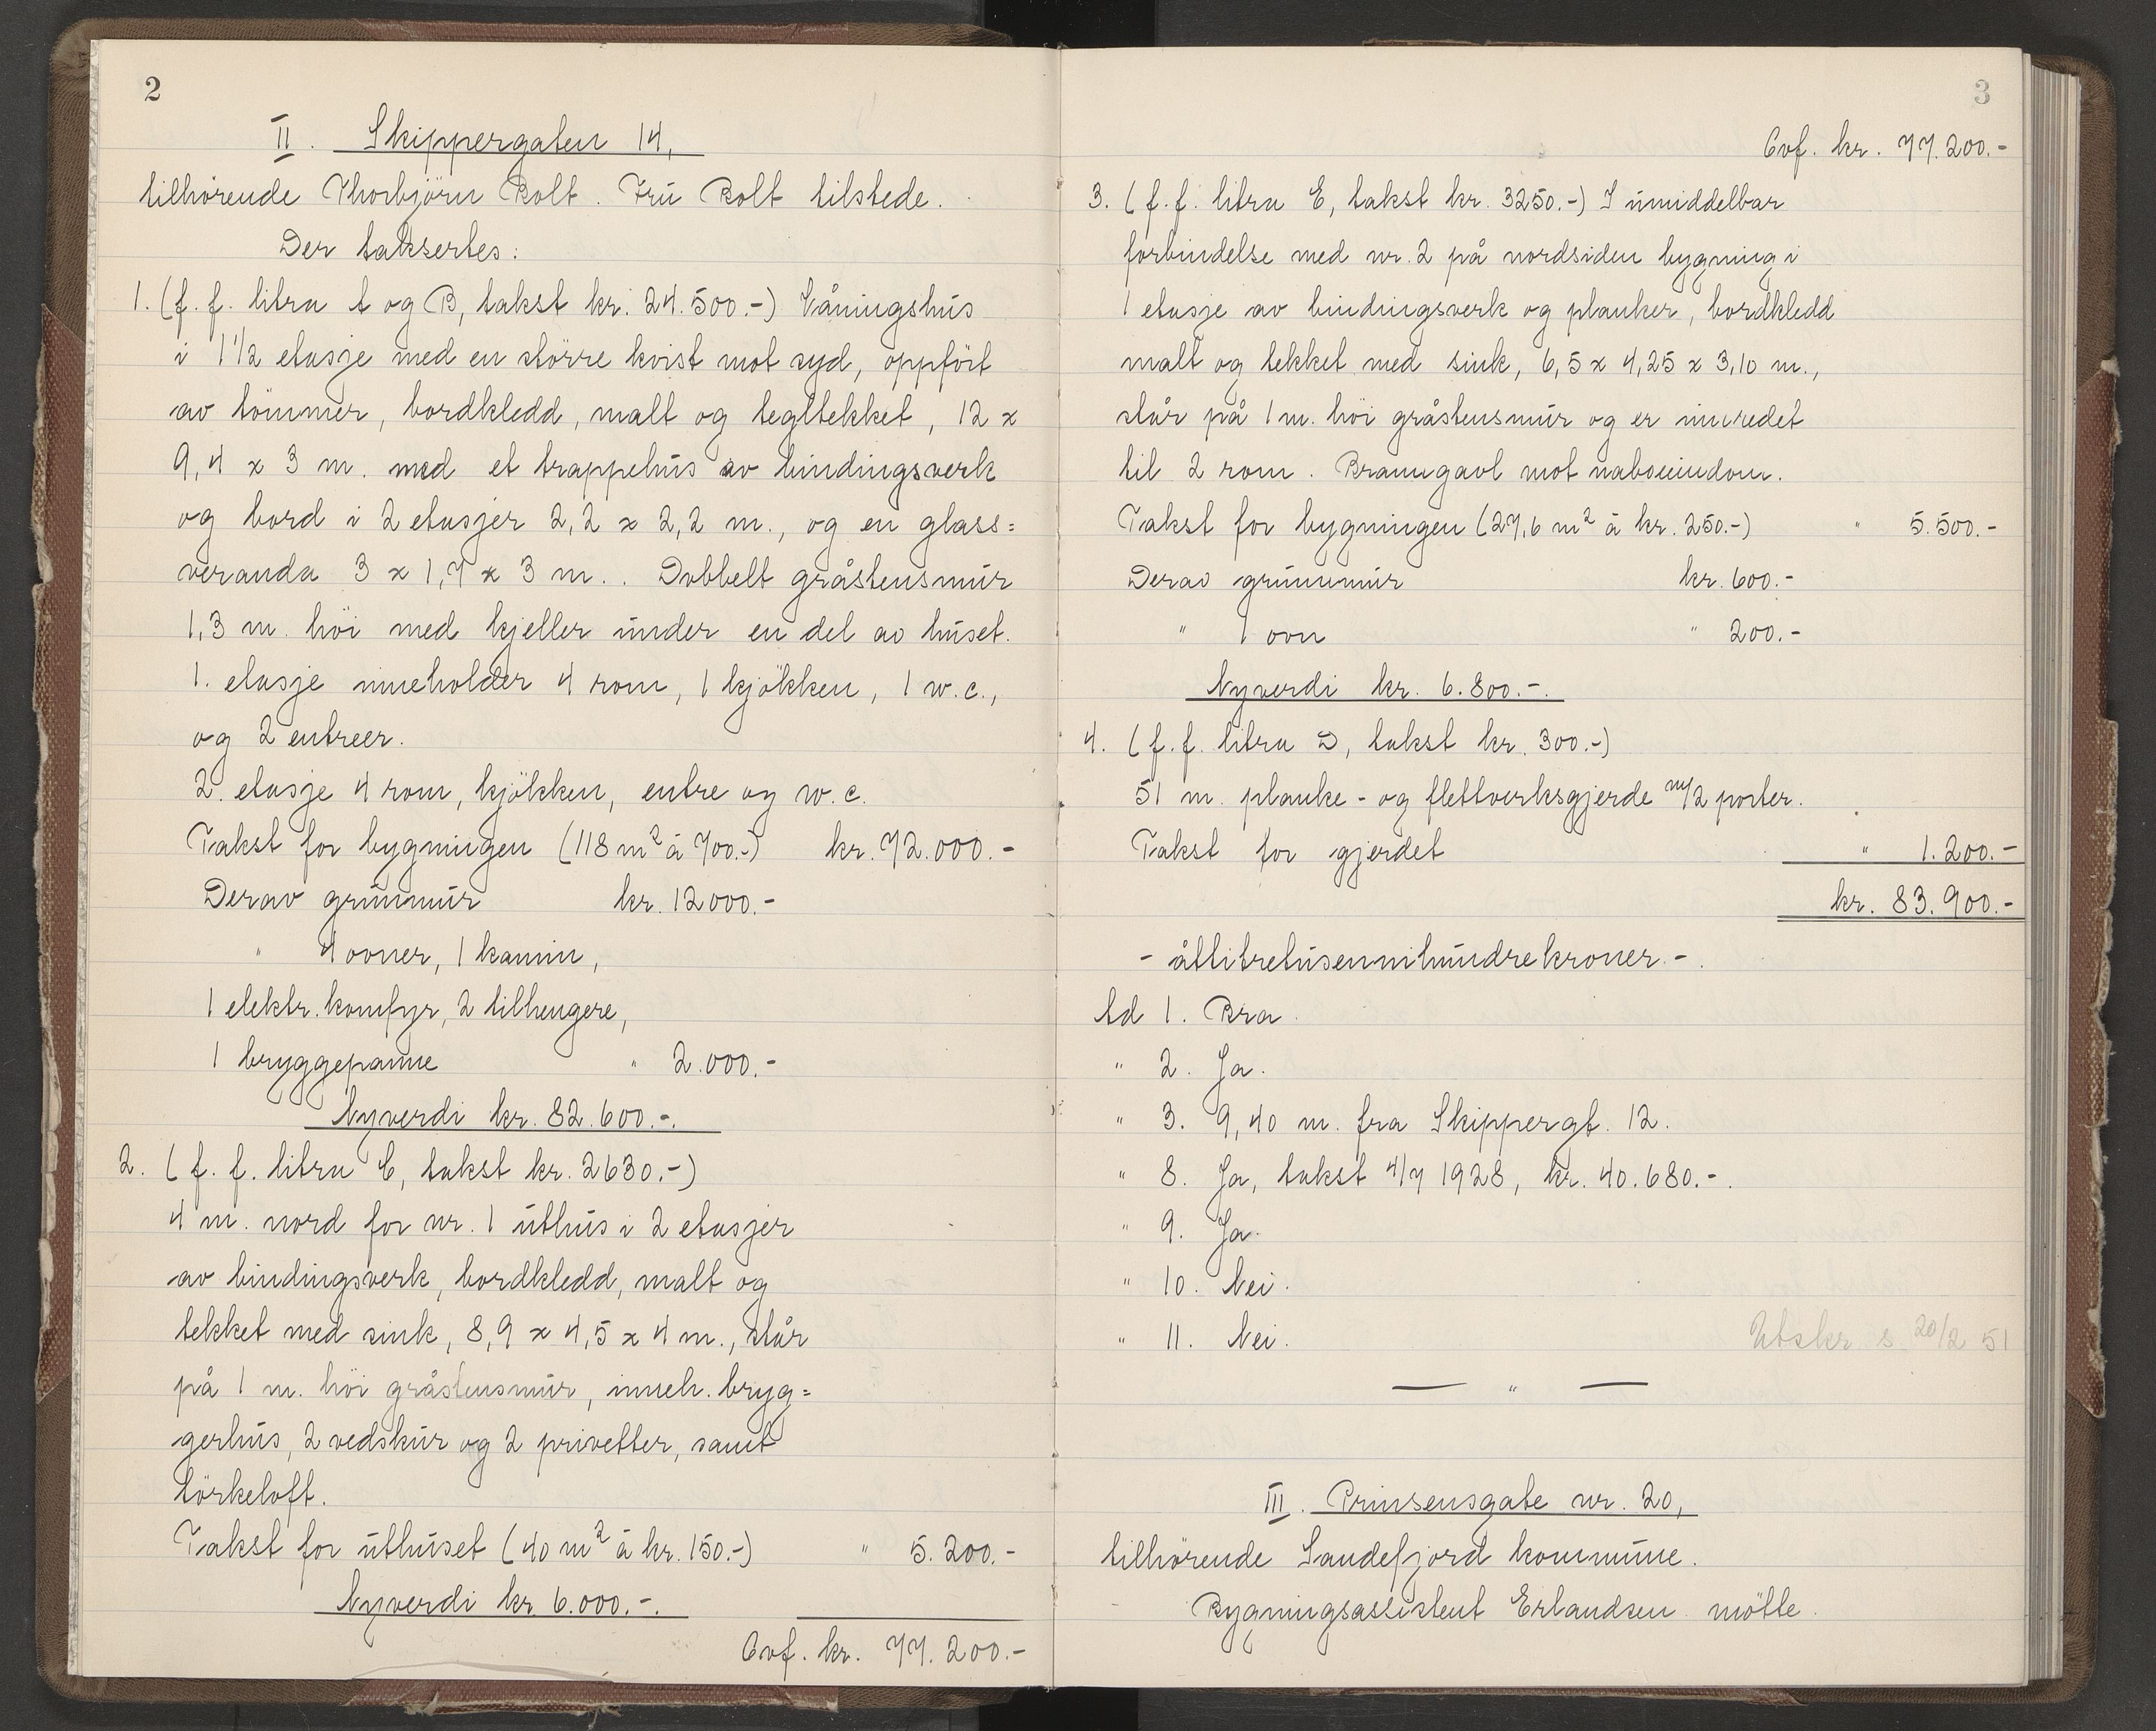 2
II. Skippergaten 14,
tilhörende Thorbjörn Bolt. Frü Bolt tilstede.
Der taksertes:
1. (f. f. litra A og B, takst kr. 24.500.-) Våningshüs
i 1 1/2 etasje med en större kvist mot syd, oppfört
av tömmer, bordkledd, malt og tegltekket, 12 x
9,4 x 3 m. med et trappehüs av bindingsverk
og bord i 2 etasjer 2,2 x 2,2 m., og en glass=
veranda 3 x 1,7 x 3 m.. Dobbelt gråstensmür
1,3 m. höi med kjeller ünder en del av hüset.
1. etasje inneholder 4 rom, 1 kjökken, 1 w.c.,
og 2 entreer.
2. etasje 4 rom, kjökken, entre og w.c.
Takst for bygningen (118 m² á 700.-) kr. 72.000.-
Derav grünnmür kr. 12000.-
" 4 ovner, 1 kamin,
1 elektr. komfyr, 2 tilhengere,
1 bryggepanne " 2.000.-
Nyverdi kr. 82.600.-.
2. (f. f. litra C, takst kr. 2630.-)
4 m. nord for nr. 1 üthüs i 2 etasjer
av bindingsverk, bordkledd, malt og
tekket med sink, 8,9 x 4,5 x 4 m., står
på 1 m. höi gråstensmür, inneh. bryg=
gerhüs, 2 vedskür og 2 privetter, samt
törkeloft.
Takst for üthüset (40 m² á kr. 150.-) " 5.200.-
Nyverdi kr 6.000.-.
Ovf. kr. 77.200.-
3
Ovf. kr. 77.200.-
3. (f. f. litra E, takst kr. 3250.-) I ümiddelbar
forbindelse med nr. 2 på nordsiden bygning i
1 etasje av bindingsverk og planker, bordkledd
malt og tekket med sink, 6,5 x 4,25 x 3,10 m.,
står på 1 m. höi gråstensmür og er innredet
til 2 rom. Branngavl mot naboeiendom.
Takst for bygningen (27,6 m² á kr. 250.-) " 5.500.-
Derav grünnmür kr. 600.-
" 1 ovn " 200.-
Nyverdi kr. 6.800.-.
4. (f. f. litra D, takst kr. 300.-)
51 m. planke- og flettverksgjerde m/2 porter.
Takst for gjerdet " 1.200.-
kr. 83.900.-
- åttitretüsennihündrekroner.-.
Ad 1. Bra.
" 2. Ja.
" 3. 9,40 m. fra Skippergt. 12.
" 8. Ja, takst 4/7 1928, kr. 40.680.-.
" 9. Ja.
" 10. Nei.
" 11. Nei.
Utskr. s. 20/2 51
— " —
III. Prinsensgate nr. 20,
tilhörende Sandefjord kommüne.
Bygningsassistent Erlandsen mötte.